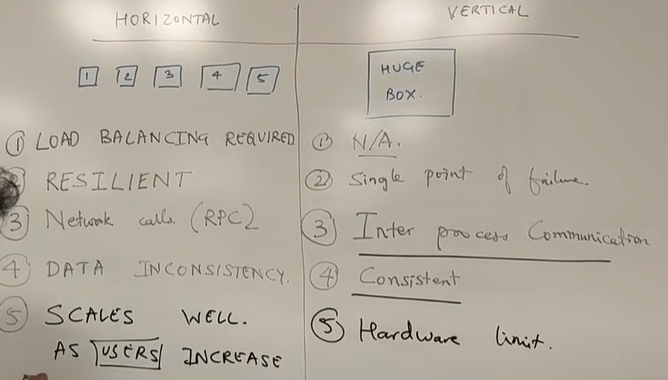 HORIZONTAL
1 2 3 4 5
① LOAD BALANCING REQUIRED
RESILIENT
③ Network calls (RPC)
④ DATA INCONSISTENCY.
⑤ SCALES WELL.
AS USERS INCREASE
VERTICAL
HUGE
BOX.
① N/A.
② Single point of failure.
③ Inter process Communication.
④ Consistent
⑤ Hardware limit.